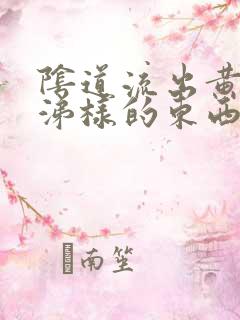 陰道流出黄
涕樣的東西
南笙